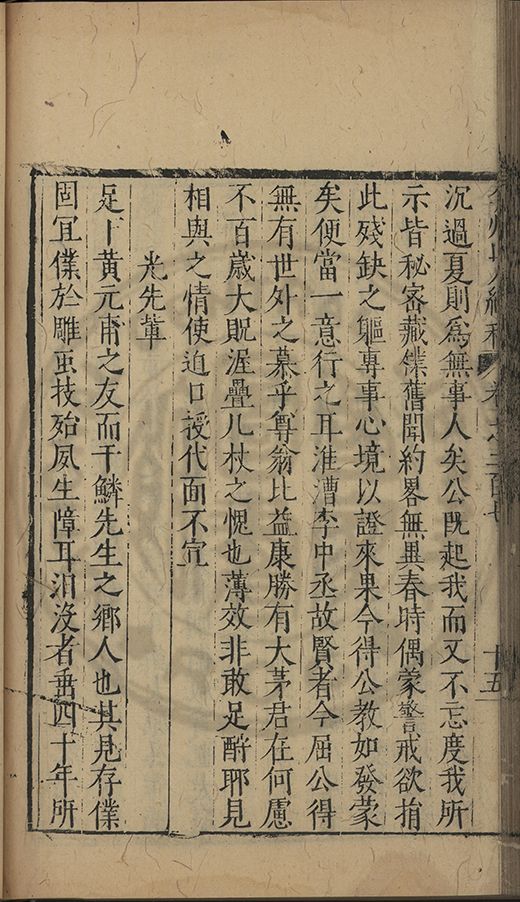 弇州山人續稿 卷之二百七 十五
沉過夏則為無事人矣公既起我而又不忘度我所
示皆秘密藏僕舊聞約畧無異春時偶蒙警戒欲捐
此殘缺之軀專事心境以證來果今得公教如發蒙
矣便當一意行之耳淮漕李中丞故賢者今屈公得
無有世外之慕乎尊翁比益康勝有大茅君在何慮
不百歲大貺渥疊几杖之愧也薄效非敢足酧耶見
相與之情使迫口授代面不宜
光先輩
足下黃元甫之友而于鱗先生之鄉人也其見存僕
固宜僕於雕虫技殆夙生障耳汨没者垂四十年所